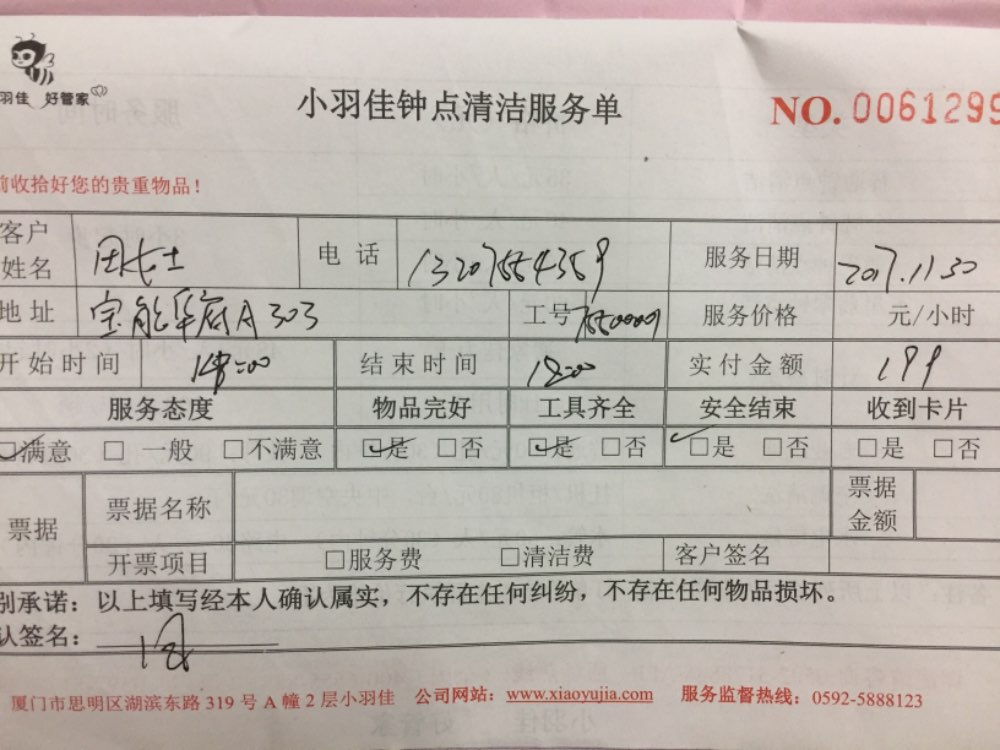 羽佳 好管家
小羽佳钟点清洁服务单
NO. 0061299
前收拾好您的贵重物品！
客户姓名 田女士 电话 13207554359 服务日期 2017.11.30
地址 宝能华府A303 工号 服务价格 元/小时
开始时间 14:00 结束时间 18:00 实付金额 199
服务态度 物品完好 工具齐全 安全结束 收到卡片
☑满意 □一般 □不满意 ☑是 □否 ☑是 □否 ☑是 □否 □是 □否
票据 票据名称 票据金额
开票项目 □服务费 □清洁费 客户签名
别承诺：以上填写经本人确认属实，不存在任何纠纷，不存在任何物品损坏。
认签名：
厦门市思明区湖滨东路 319 号 A 幢 2 层小羽佳 公司网站：www.xiaoyujia.com 服务监督热线：0592-5888123